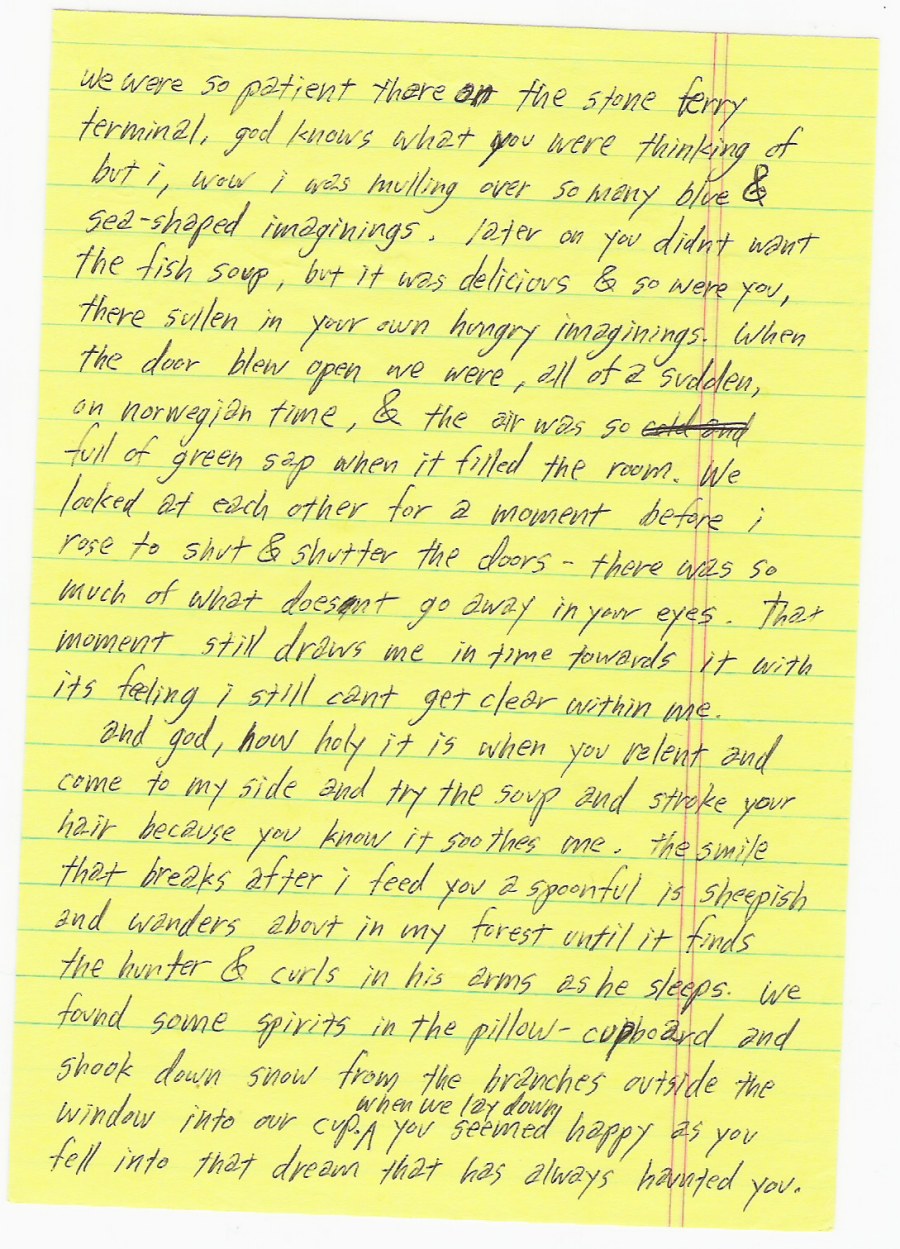 we were so patient there on the stone ferry
terminal, god knows what you were thinking of
but i, wow i was mulling over so many blue &
sea-shaped imaginings. later on you didnt want
the fish soup, but it was delicious & so were you,
there sullen in your own hungry imaginings. When
the door blew open we were, all of a sudden,
on norwegian time, & the air was so cold and
full of green sap when it filled the room. We
looked at each other for a moment before i
rose to shut & shutter the doors - there was so
much of what doesnt go away in your eyes. That
moment still draws me in time towards it with
its feeling i still cant get clear within me.
and god, how holy it is when you relent and
come to my side and try the soup and stroke your
hair because you know it soothes me. the smile
that breaks after i feed you a spoonful is sheepish
and wanders about in my forest until it finds
the hunter & curls in his arms as he sleeps. we
found some spirits in the pillow-cupboard and
shook down snow from the branches outside the
when we lay down
window into our cup. you seemed happy as you
fell into that dream that has always haunted you.